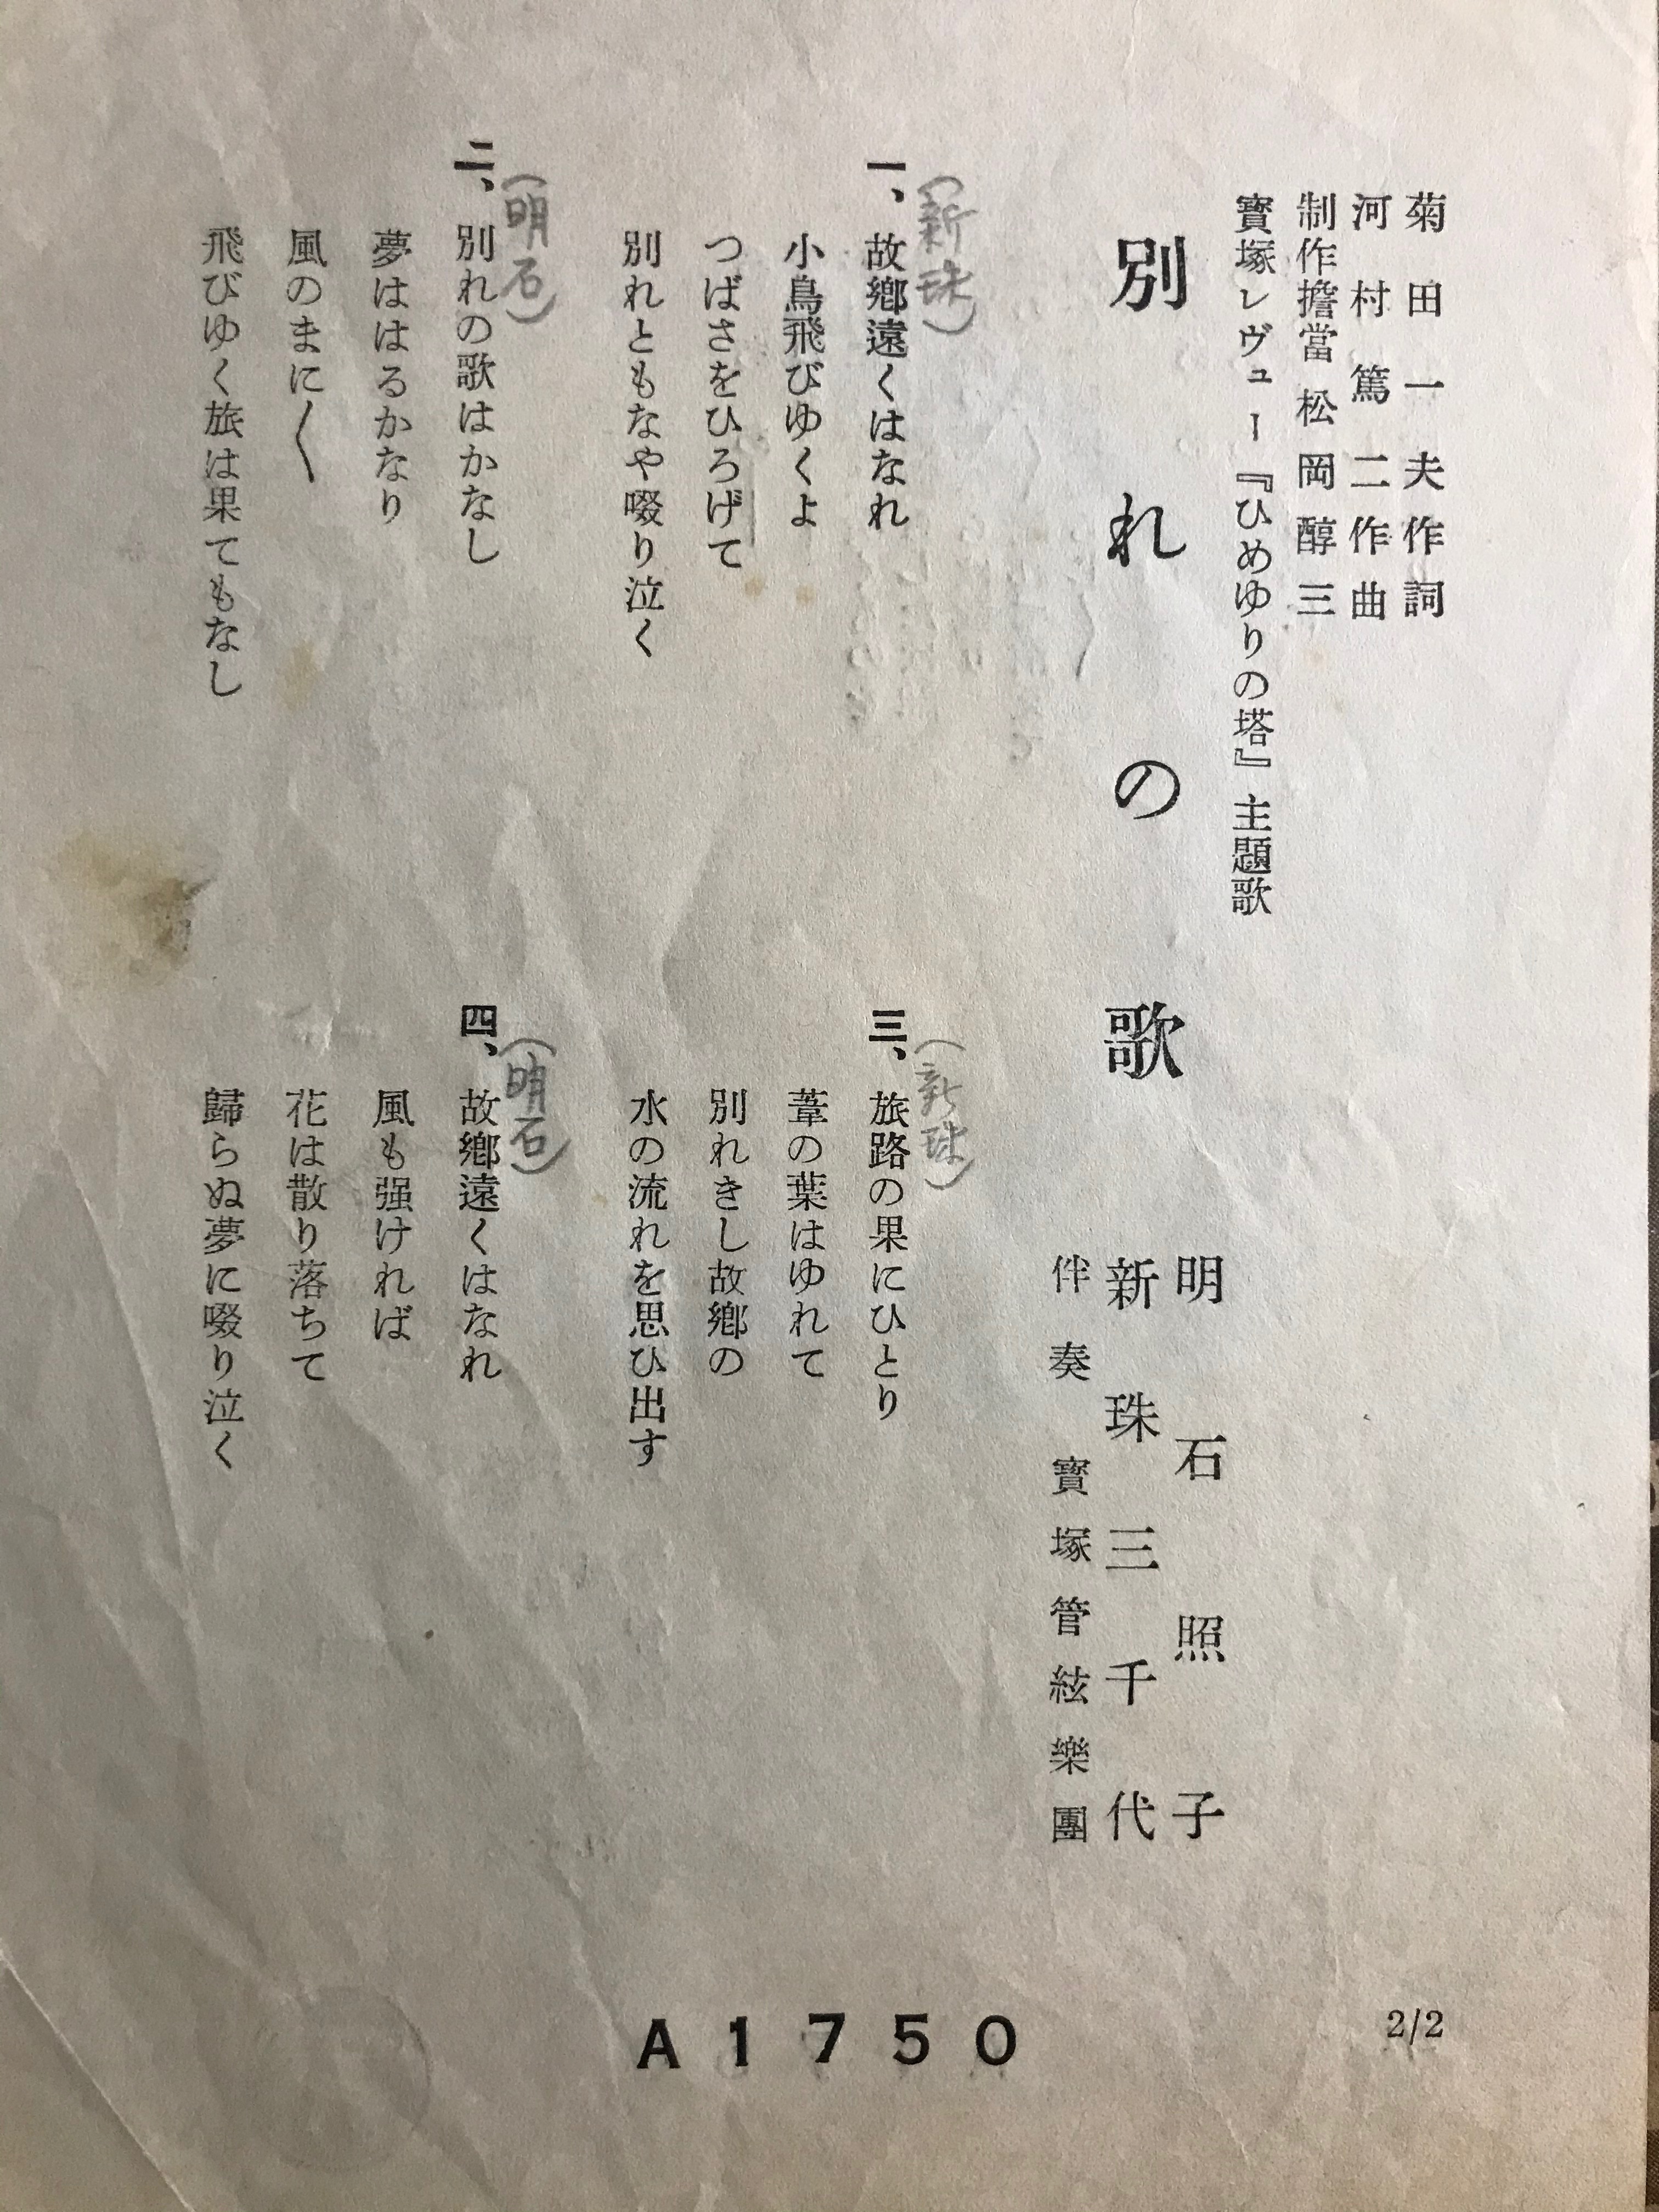 菊田一夫作詞
河村篤二作曲
制作擔當 松岡醇三
寶塚レヴュー『ひめゆりの塔』主題歌
別れの歌
明石照子
新珠三千代
伴奏 寶塚管絃樂團
(新珠)
一、故鄕遠くはなれ
小鳥飛びゆくよ
つばさをひろげて
別れともなや啜り泣く
(明石)
二、別れの歌はかなし
夢ははるかなり
風のまに〱
飛びゆく旅は果てもなし
(新珠)
三、旅路の果にひとり
葦の葉はゆれて
別れきし故鄕の
水の流れを思ひ出す
(明石)
四、故鄕遠くはなれ
風も强ければ
花は散り落ちて
歸らぬ夢に啜り泣く
A1750
2/2